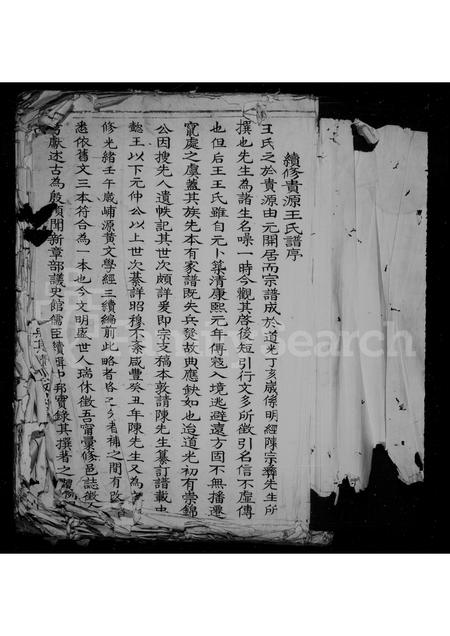 續修貴源王氏譜序
王氏之於貴源由元開居而宗譜成於道光丁亥歲係明經陳宗彝先生所
撰也先生為諸生名噪一時今觀其啓後短引行文多所徵引名信不虛傳
也但后王王氏雖自元卜築清康熙元年傳寇入境逃避遠方固不無播遷
竄處之虞蓋其族先本有家譜既失兵燹故典應缺如也迨道光初有崇錦
公因搜先人遺帙記其世次頗詳爰即宗支稿本敦請陳先生纂訂譜載中
懿王以下元仲公以上世次綦詳昭穆不紊咸豐癸丑年陳先生又為
修光緒壬午歲峬源黃文學經三續編前此略者
老補之間有改
悉依舊文三本符合為一本也今文明盛世人瑞休徵吾甯量修邑誌徵人
考獻述古為殷
聞新章部議
館儒臣續
邦實錄其撰著之體例
FamilySearch